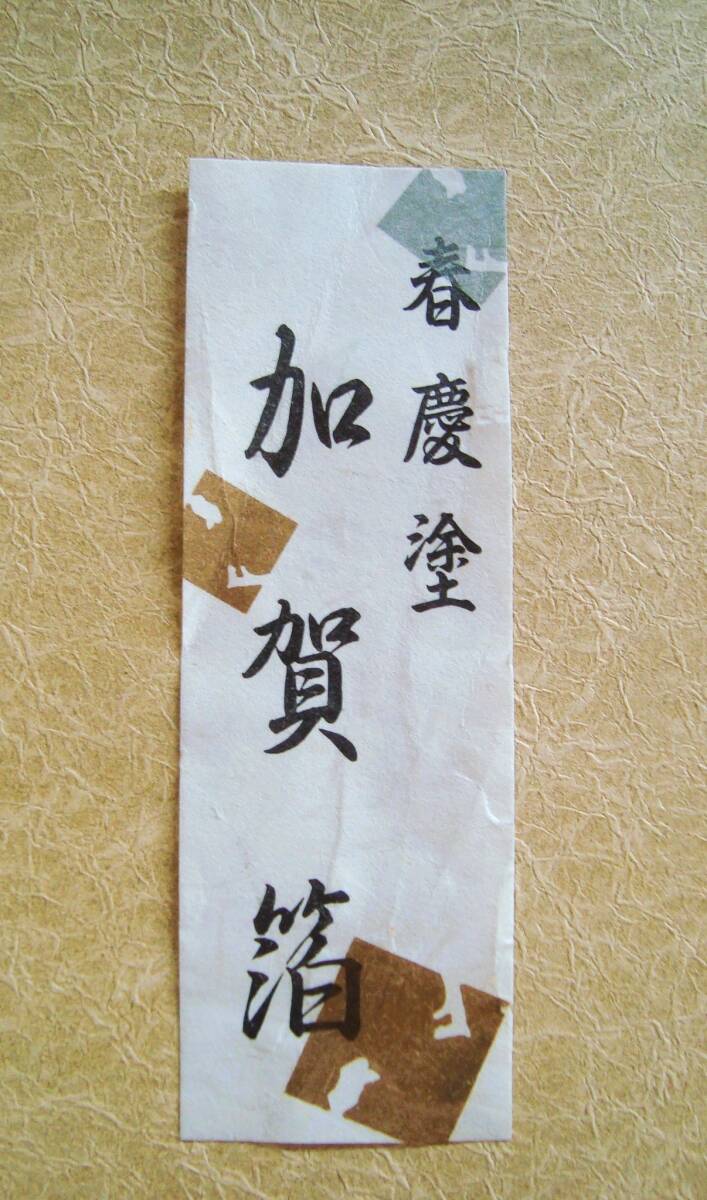 春慶塗
加賀箔